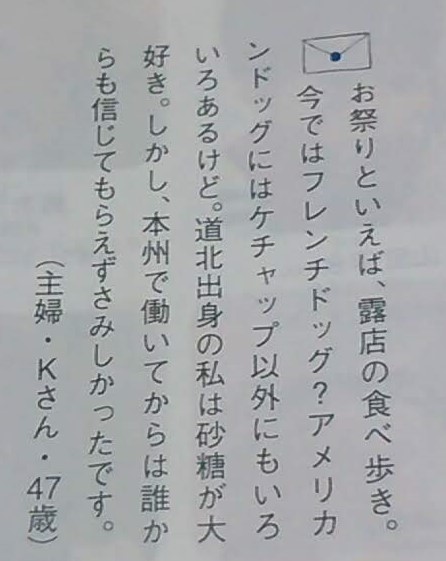 お祭りといえば、露店の食べ歩き。
今ではフレンチドッグ？アメリカ
ンドッグにはケチャップ以外にもいろ
いろあるけど。道北出身の私は砂糖が大
好き。しかし、本州で働いてからは誰か
らも信じてもらえずさみしかったです。
（主婦・Kさん・47歳）